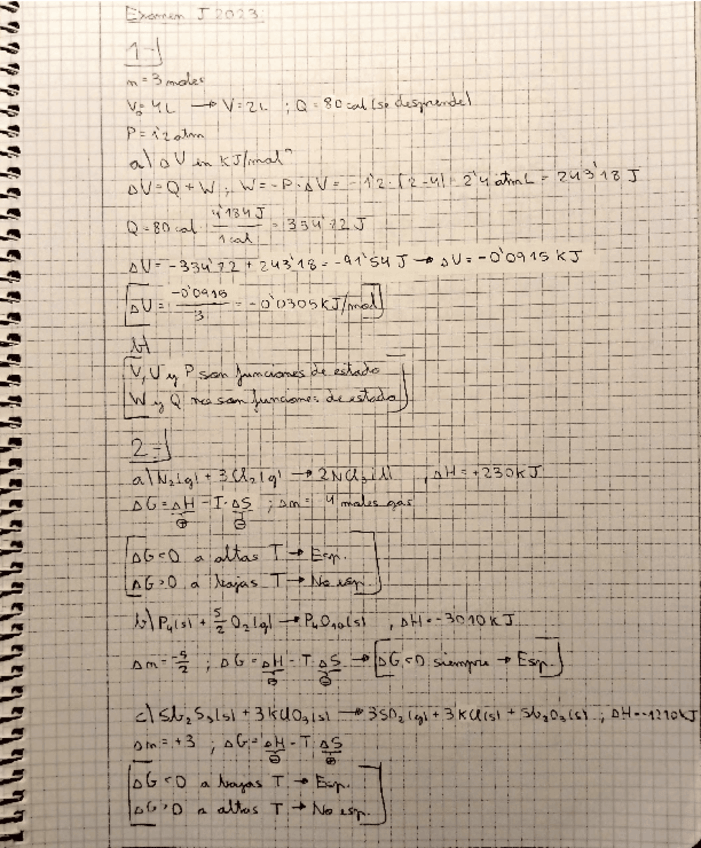 Examen J 2023
1-)
n = 3 moles
V₀ = 4L → V = 2L ; Q = 80 cal (se desprende)
P = 1'2 atm
a) ΔU en KJ/mol?
ΔU = Q + W ; W = -P·ΔV = -1'2·(2-4) = 2'4 atmL = 243'18 J
Q = 80 cal · 4'184 J / 1 cal = 334'72 J
ΔU = -334'72 + 243'18 = -91'54 J → ΔU = -0'0915 KJ
ΔU = -0'0915 / 3 = -0'0305 KJ/mol
b)
V, U y P son funciones de estado
W y Q no son funciones de estado
2-)
a) N₂(g) + 3Cl₂(g) → 2NCl₃(l) , ΔH = +230 KJ
ΔG = ΔH - T·ΔS ; Δn = 4 moles gas
ΔG < 0 a altas T → Esp.
ΔG > 0 a bajas T → No esp.
b) P₄(s) + 5/2 O₂(g) → P₄O₁₀(s) , ΔH = -3010 KJ
Δn = -5/2 ; ΔG = ΔH - T·ΔS → ΔG < 0 siempre → Esp.
c) Sb₂S₃(s) + 3KClO₃(s) → 3SO₂(g) + 3KCl(s) + Sb₂O₃(s) ; ΔH = -1210 KJ
Δn = +3 ; ΔG = ΔH - T ΔS
ΔG < 0 a bajas T → Esp.
ΔG > 0 a altas T → No esp.